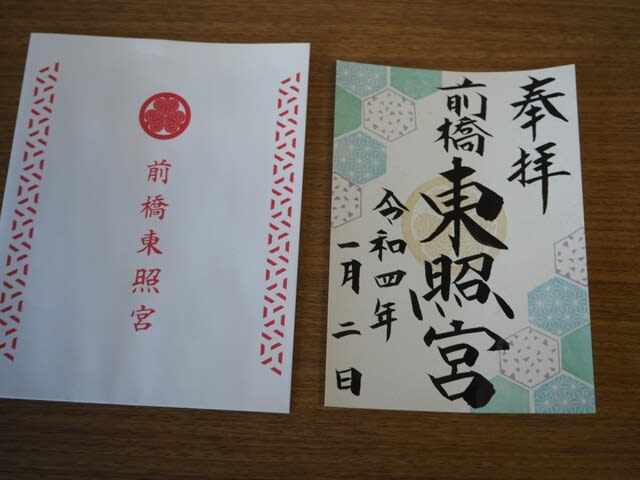 前橋東照宮
奉拝
前橋
東照宮
令和四年
一月二日